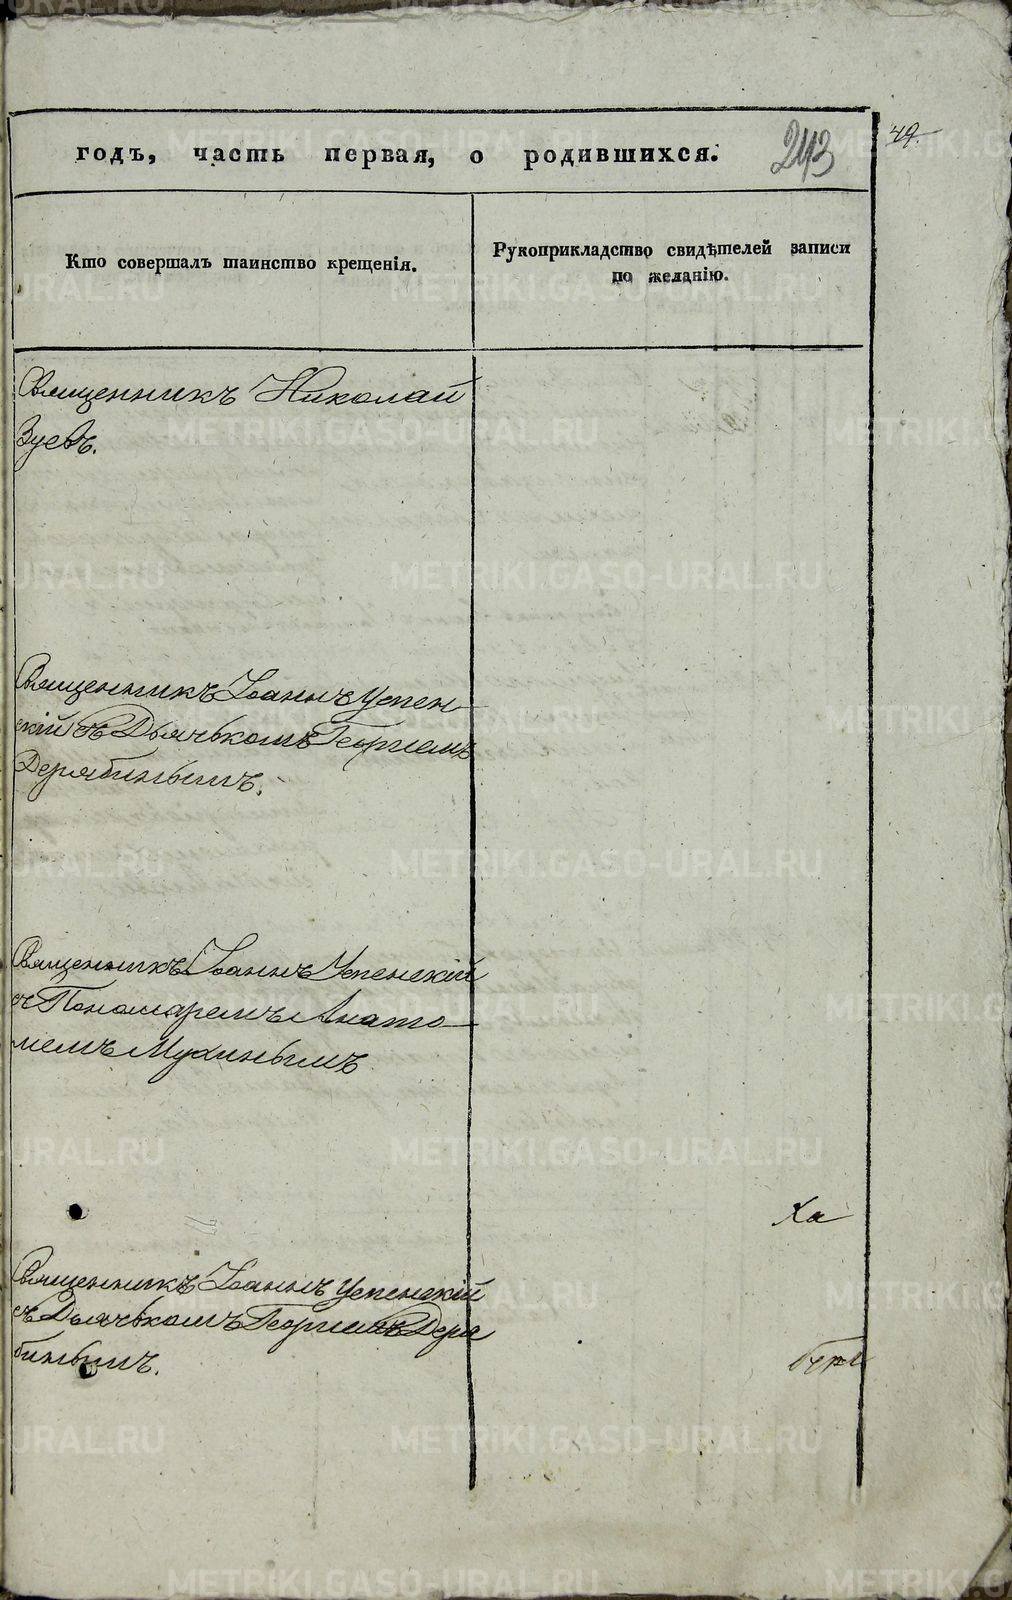 годъ, часть первая, о родившихся.
243
49.
Кто совершалъ таинство крещенія.
Рукоприкладство свидѣтелей записи
по желанію.
Священникъ Николай
Зуевъ.
Священникъ Іоаннъ Успен
скій съ Дьячькомъ Георгіемъ
Дерябинымъ.
Священникъ Іоаннъ Успенскій
съ Пономаремъ Анато
ліемъ Мухинымъ
Ка
Священникъ Іоаннъ Успенскій
съ Дьячькомъ Георгіемъ Деря
бинымъ.
METRIKI.GASO-URAL.RU